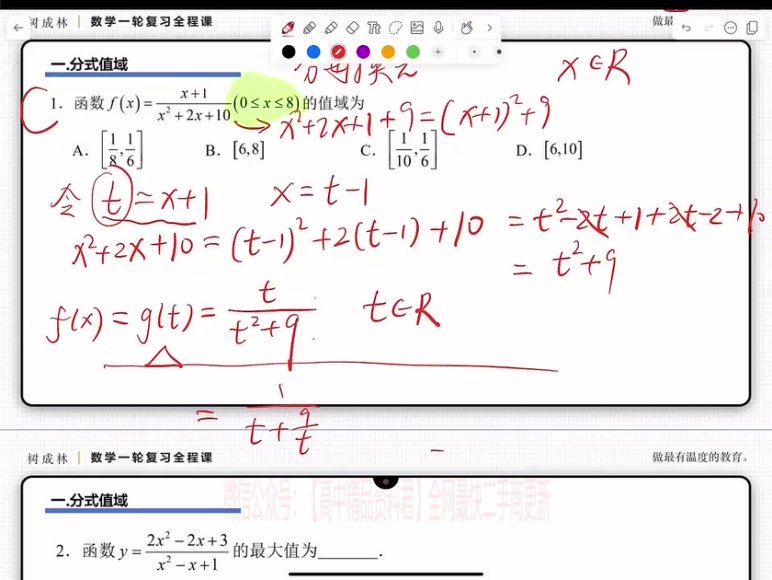 树成林 | 数学一轮复习全程课
做最
一.分式值域
分母换元
x∈R
1. 函数 f(x) = (x+1)/(x²+2x+10) (0≤x≤8) 的值域为
→ x²+2x+1+9=(x+1)²+9
A. [1/8, 1/6] B. [6,8] C. [1/10, 1/6] D. [6,10]
令 t=x+1 x=t-1
x²+2x+10=(t-1)²+2(t-1)+10 = t²-2t+1+2t-2+10
= t²+9
f(x)=g(t)= t/(t²+9) t∈R
= 1/(t+9/t)
树成林 | 数学一轮复习全程课 做最有温度的教育。
微信公众号:【高中精品资料君】全网最快二手商更新
一.分式值域
2. 函数 y = (2x²-2x+3)/(x²-x+1) 的最大值为______.